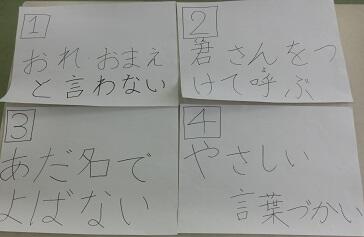 1
おれ おまえ
と言わない
2
君さんをつ
けて呼ぶ
3
あだ名で
よばない
4
やさしい
言葉づかい